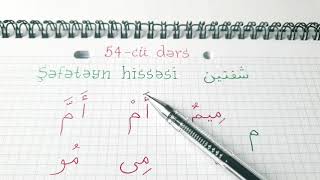 54-cü dərs
Şəfətəyn hissəsi شفتين
مِيمْ أَمْ أَمَّ
م مِى مُو